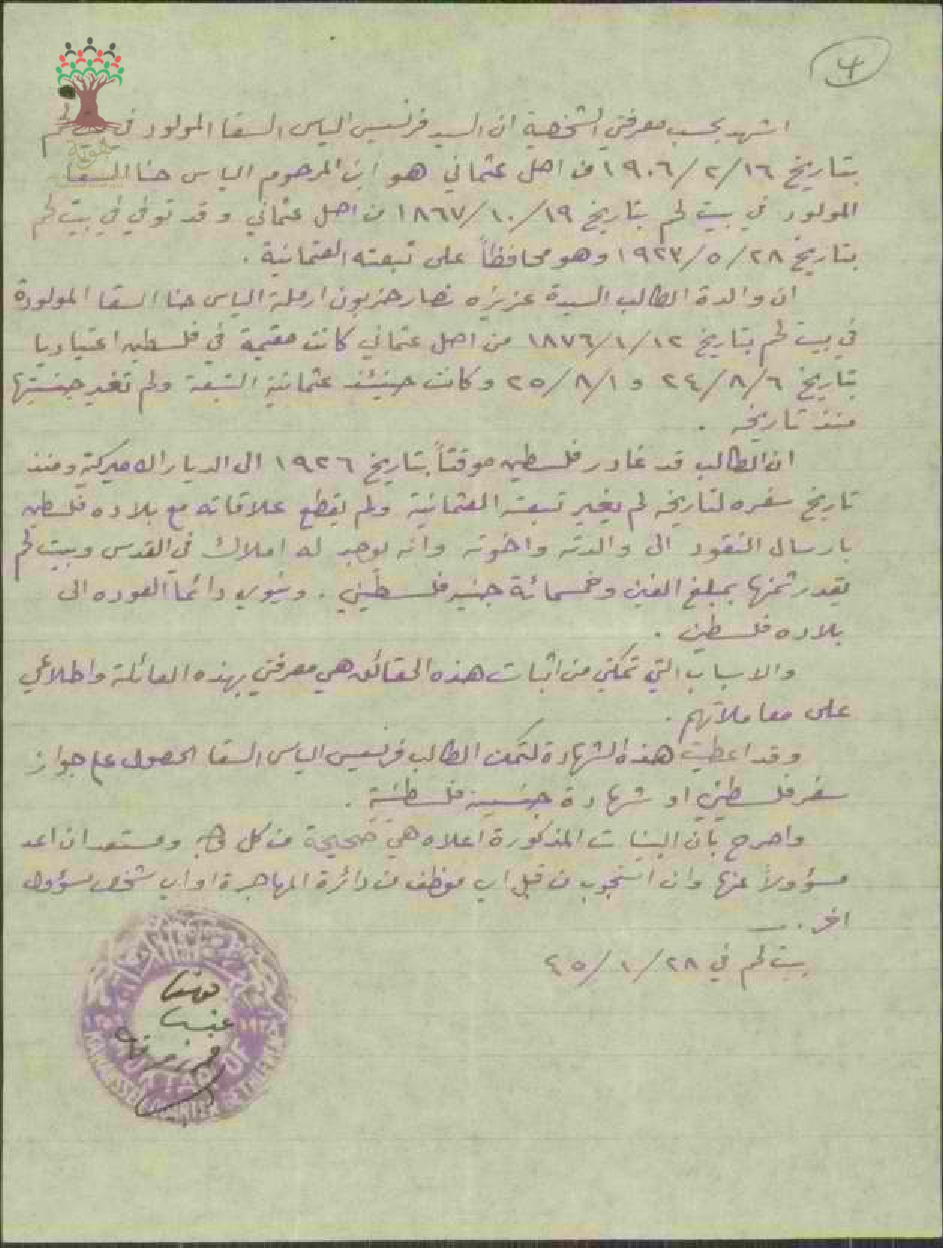 ٤
اشهد بحسب معرفتي الشخصية ان السيد فرنسيس الياس السقا المولود في لحم
بتاريخ ١٦/ ٢/ ١٩٠٦ من اصل عثماني هو ابن المرحوم الياس حنا السقا
المولود في بيت لحم بتاريخ ١٩/ ١٠/ ١٨٦٧ من اصل عثماني وقد توفي في بيت لحم
بتاريخ ٢٨/ ٥/ ١٩٢٣ وهو محافظاً على تبعته العثمانية .
ان والدة الطالب السيدة عزيزه نصار حزبون ارملة الياس حنا السقا المولودة
في بيت لحم بتاريخ ١٢/ ١/ ١٨٧٦ من اصل عثماني كانت مقيمة في فلسطين اعتياديا
بتاريخ ٦/ ٨/ ٢٤ و ١/ ٨/ ٢٥ وكانت حينئذ عثمانية التبعة ولم تغير جنسيتها
منذ تاريخه .
ان الطالب قد غادر فلسطين موقتاً بتاريخ ١٩٢٦ الى الديار الاميركية ومنذ
تاريخ سفره لتاريخه لم يغير تبعته العثمانية ولم يقطع علاقاته مع بلاده فلسطين
بارسال النقود الى والدته واخوته وانه يوجد له املاك في القدس وبيت لحم
يقدر ثمنها بمبلغ الفين وخمسمائة جنيه فلسطيني . وينوي دائما العوده الى
بلاده فلسطين .
والاسباب التي تمكني من اثبات هذه الحقائق هي معرفتي بهذه العائلة واطلاعي
على معاملاتهم .
وقد اعطيت هذه الشهادة لتمكن الطالب فرنسيس الياس السقا الحصول على جواز
سفر فلسطيني او شهادة جنسية فلسطينية .
واصرح بان البينات المذكورة اعلاه هي صحيحة من كل وجه ومستعد ان اعد
مسؤولاً عنها وان استجوب من قبل اي موظف من دائرة المهاجرة او اي شخص مسؤول
اخر .
بيت لحم في ٢٨/ ١/ ٤٥
MUKHTAR OF